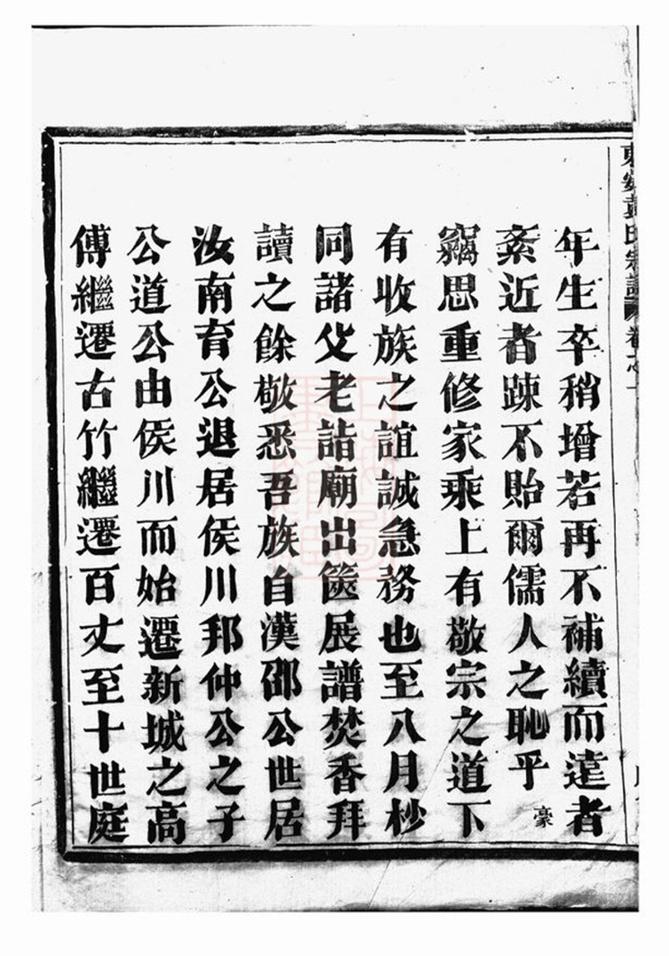 氏宗譜 卷之一
年生卒稍增若再不補續而遠者
紊近者踈不貽爾儒人之恥乎豪
竊思重修家乘上有敬宗之道下
有收族之誼誠急務也至八月杪
同諸父老詣廟出篋展譜焚香拜
讀之餘敬悉吾族自漢邵公世居
汝南育公退居侯川邦仲公之子
公道公由侯川而始遷新城之高
傅繼遷古竹繼遷百丈至十世庭